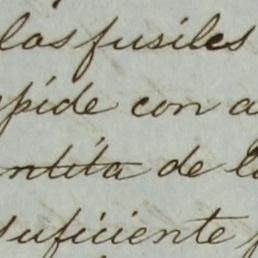 las fusiles
pide con a
ntita de l
suficiente